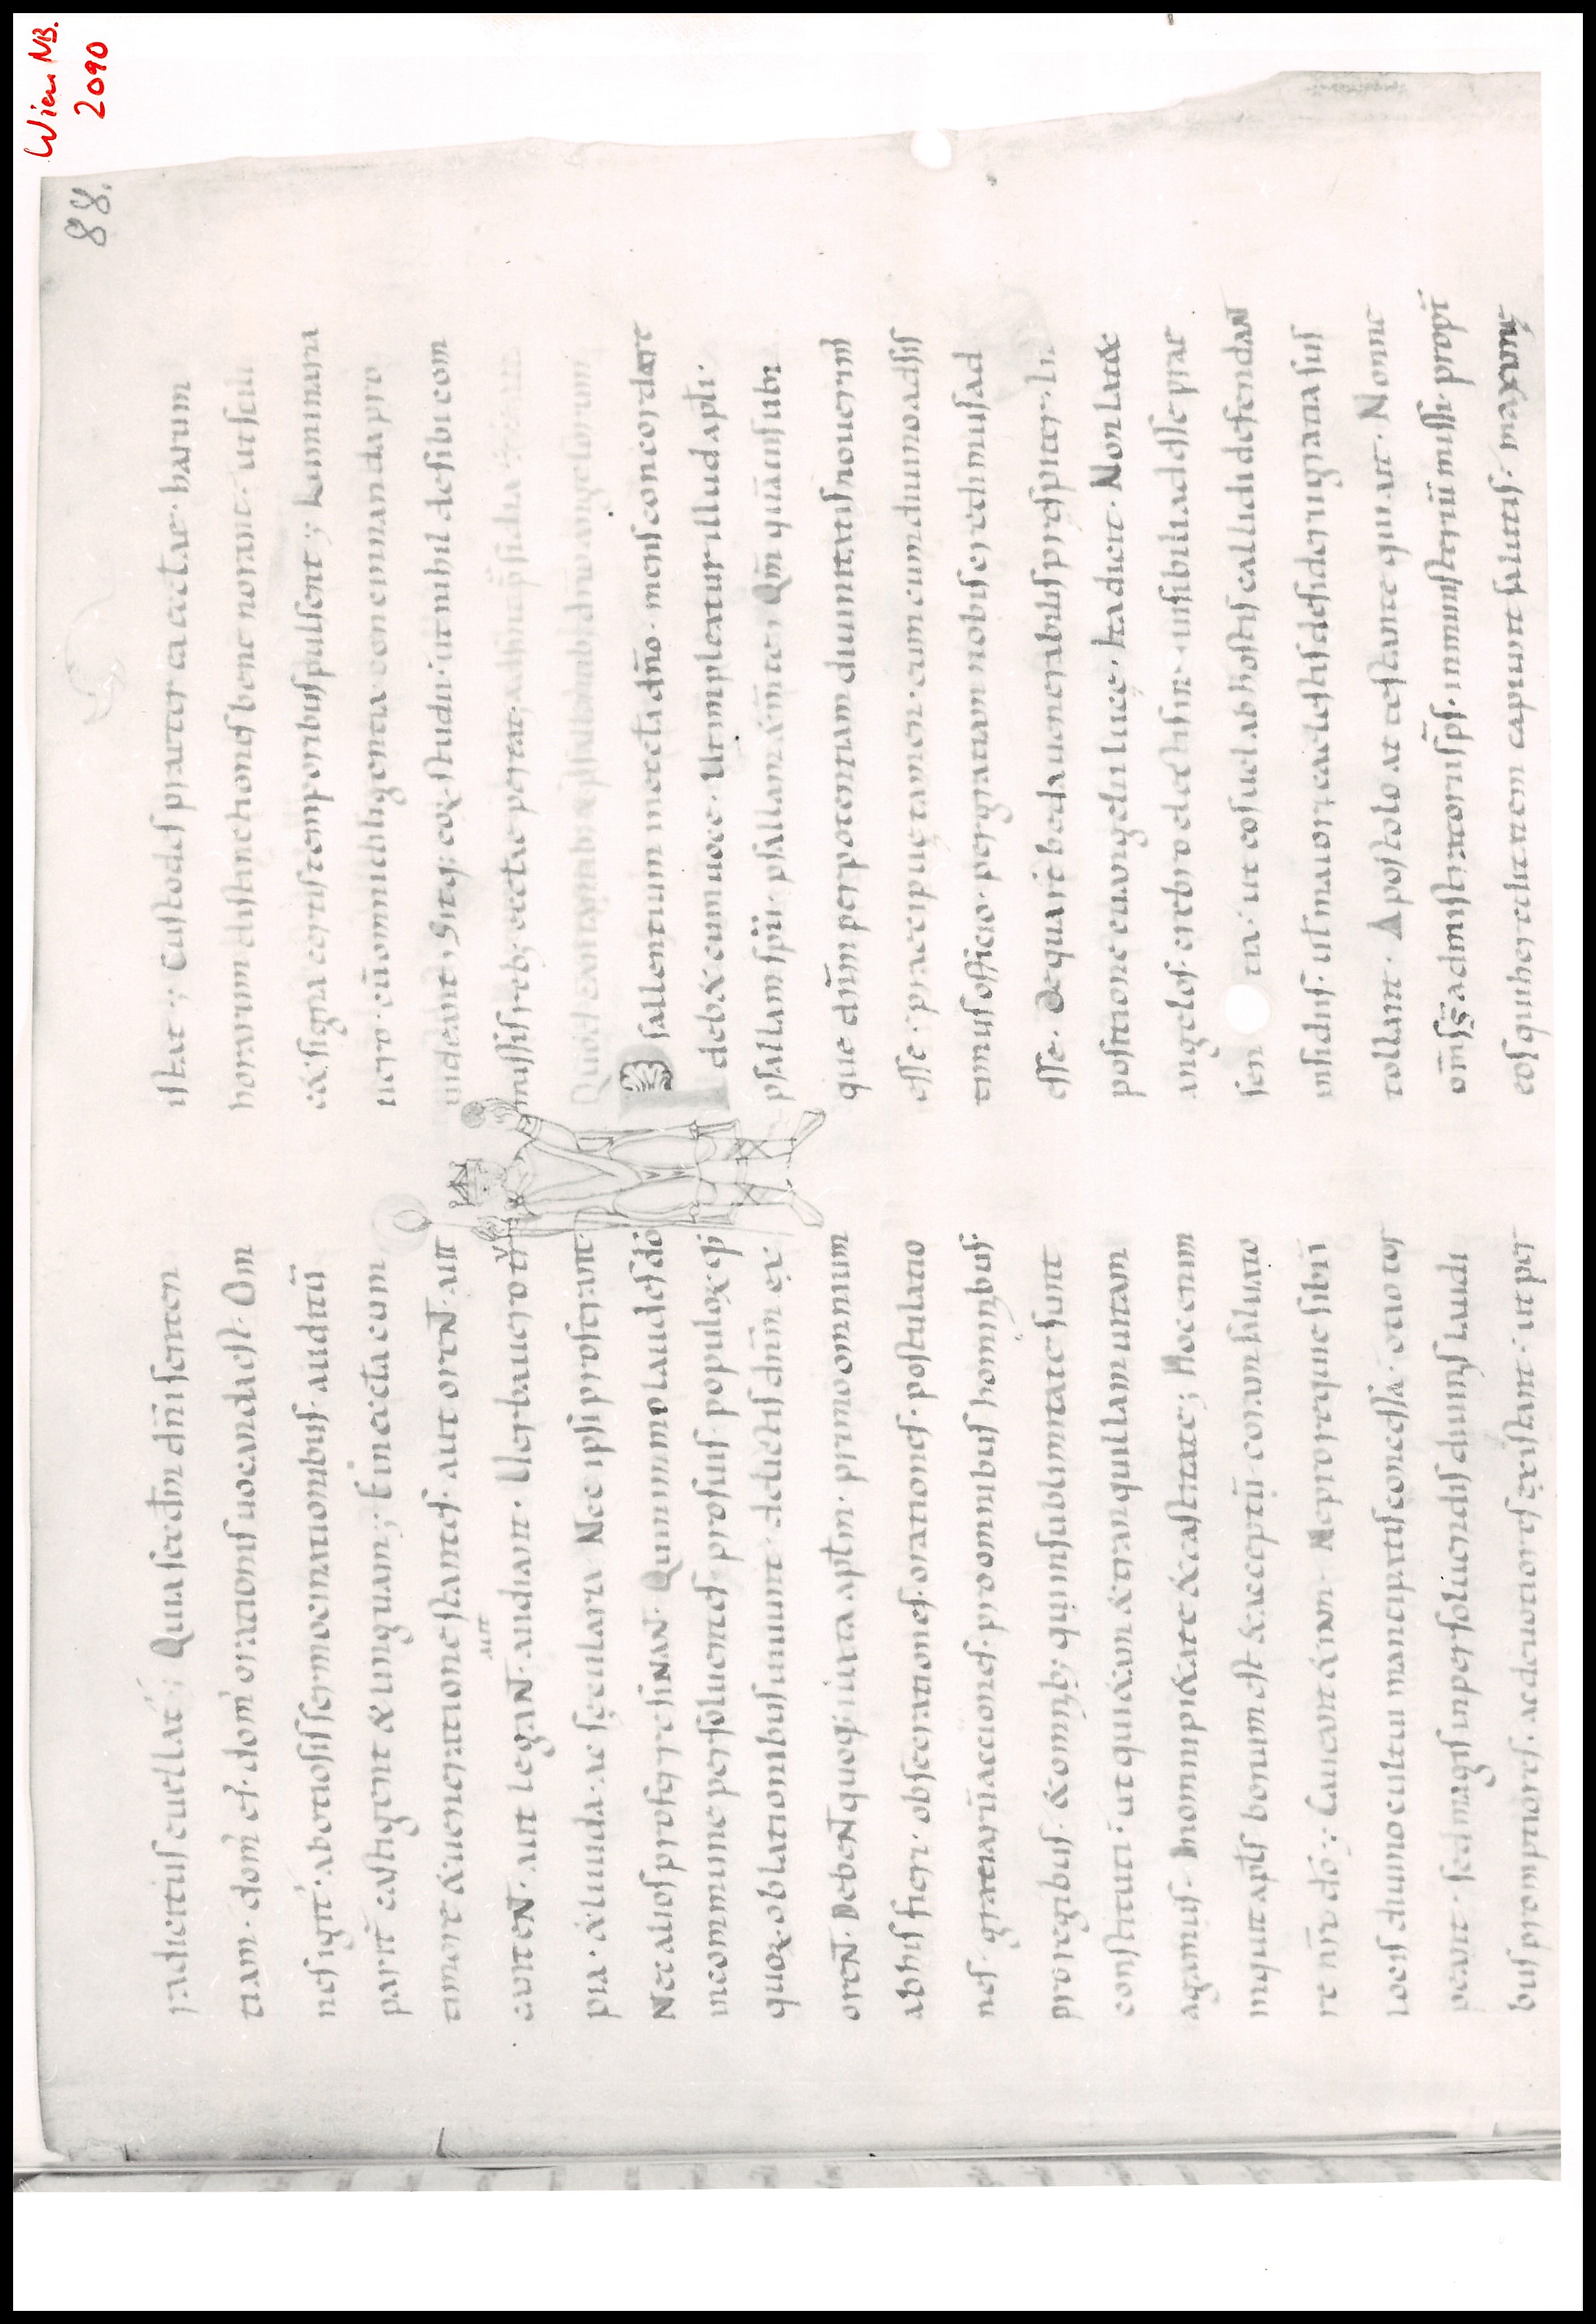 Wien NB.
2090
88.
radicitus euellat·; Quia secdm dni senten
tiam· dom' ei· dom' orationis uocanda est· Om
nes igit' ab otiosis sermocinationibus· auditū
parit' castigent & linguam·; Et in aecta cum
timore & ueneratione stantes· aut oreNt· aut
aut
canteNt· aut legaNt· audiant· Uerba uero
pia· & luuda· ac secularia Nec ipsi proferant·
Nec alios proferre sinaNt· Quin immo laudes dō
incommune persoluentes· pro suis· populoꝝ q;
quoꝝ· oblationibus uiuunt· delictis dnm ex
oreNt· DebeNt quoq; iuxta aptm· primo omnium
ab his fieri· obsecrationes· orationes· postulatio
nes· gratiarū acciones· pro omnibus hominibus·
pro regibus· & omnib; qui in sublimitate sunt
constituti· ut qui&am & tranquillam uitam
agamus· In omni pi&ate & castitate·; Hoc enim
inquit apls bonum est & acceptū· coram saluato
re nro dō·; Caueant &iam· Ne pro requie sibi ī
locis diuino cultui mancipatis concessa· otio tor
peant· sed magis in persoluendis diuinis laudi
bus promptiores· ac deuotiores existant· ut per
istat·; Custodes praeter ea aectae· harum
horarum distinctiones bene norant· ut scili
c& signa certis temporibus pulsent·; Luminaria
uero· cū omni diligentia concinnanda pro
uideant· Sitq; eoꝝ studii· ut nihil de sibi com
missis reb; aectae pereat·
Quod
Psallentium in aecta dno· mens concordare
deb& cum uoce· Ut impleatur illud apli·
psallam spū· psallam & mte· Qm quamuis ubi
que dnm per potentiam diuinitatis nouerim
esse· praecipue tamen· eum cum diuino adsis
timus officio· per gratiam nobis credimus ad
esse· De qua re beda uenerabilis prespiter· In
positione euangelii luce· Ita dicit· Non lat&
angelos· crebro electis in uisibiliter adesse prae
sen tia· ut eos uel ab hostis callidi defendant
insidiis· uel maiore caelestis desiderii gratia sus
tollant· Apostolo attestante qui ait· Nonne
oms s̄ admistratorii sps· in ministeriū missi· propt'
eos qui hereditatem capiunt salutis· maxime